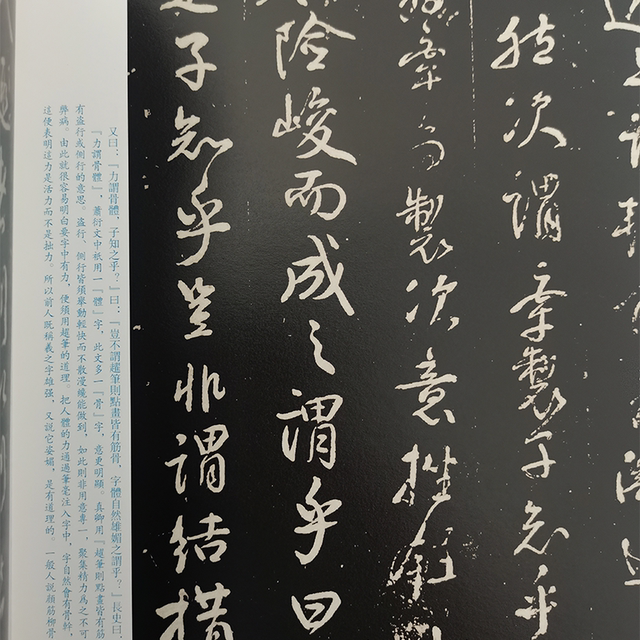 然決謂牽製子知乎
牽為製決意挫
險峻而成之謂乎曰
子知乎豈非謂結構
又曰：『力謂骨體，子知之乎？』曰：『豈不謂趯筆則點畫皆有筋骨，字體自然雄媚之謂乎？』長史曰：
『力謂骨體』，蕭衍文中祇用一『體』字，此文多一『骨』字，意更明顯。真卿用『趯筆則點畫皆有筋
有盜行或側行的意思。盜行、側行皆須舉動輕快而不散漫纔能做到，如此則非用意專一，聚集精力為之不可
弊病。由此就很容易明白要字中有力，便須用趯筆的道理。把人體的力通過筆毫注入字中，字自然會有骨幹，
這便表明這力是活力而不是拙力，所以前人既稱羲之字雄强，又說它姿媚，是有道理的。一般人說顏筋柳骨